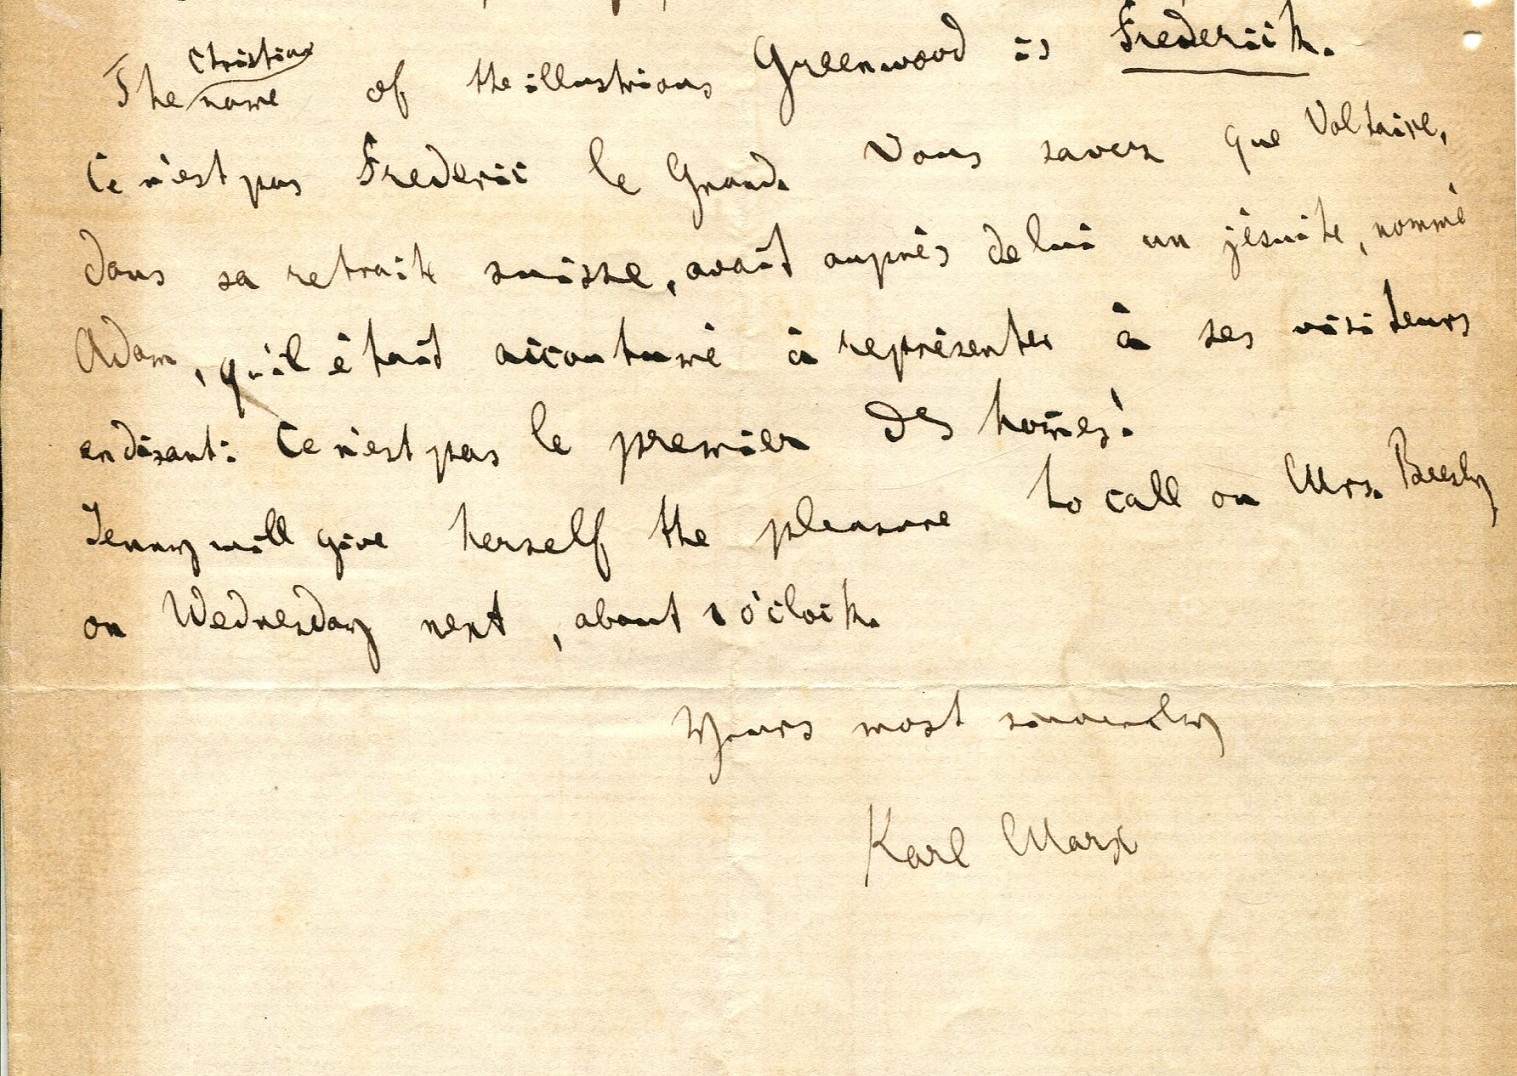 The Christian name of the illustrious Greenwood is Frederick.
Ce n'est pas Frederic le Grand. Vous savez que Voltaire,
dans sa retraite suisse, avait auprès de lui un jésuite, nommé
Adam, qu'il était accoutumé à représenter à ses visiteurs
en disant: Ce n'est pas le premier des hom̅es!
Jenny will give herself the pleasure to call on Mrs. Beesly
on Wednesday next, about 1 o'clock.
Yours most sincerely
Karl Marx